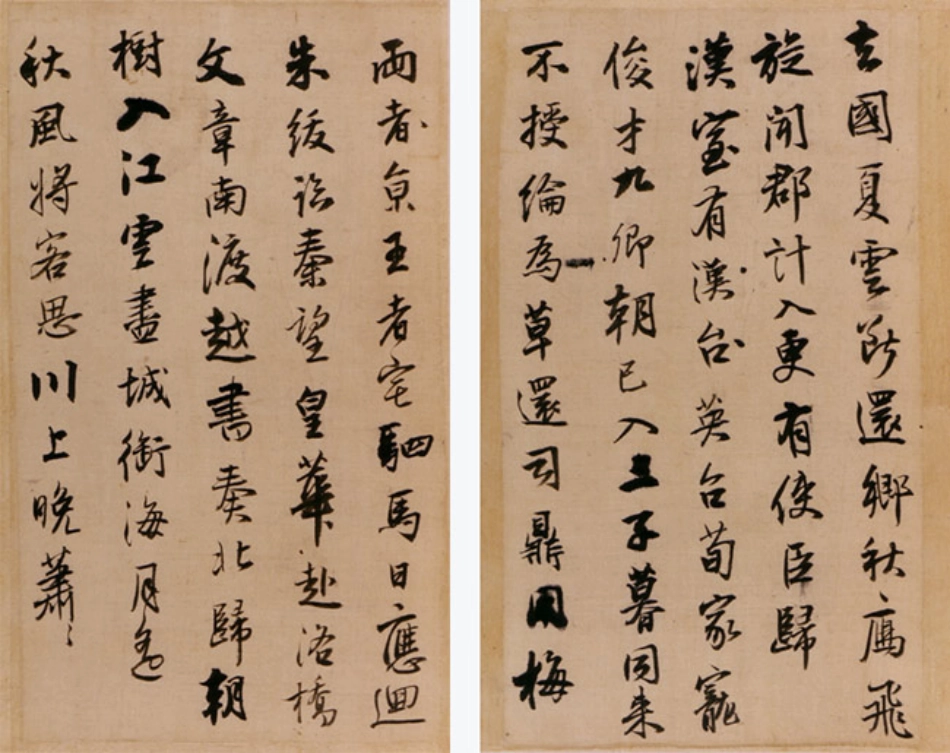 去國夏雲斷還鄉秋雁飛
旋聞郡計入更有使臣歸
漢室有漢台英台荀家寵
俊才九卿朝已入三子暮同来
不授綸為草還司鼎用梅
兩者京王者宅駟馬日應迴
朱紱臨秦望皇華赴洛橋
文章南渡越書奏北歸朝
樹入江雲盡城銜海月遙
秋風將客思川上晚蕭〻